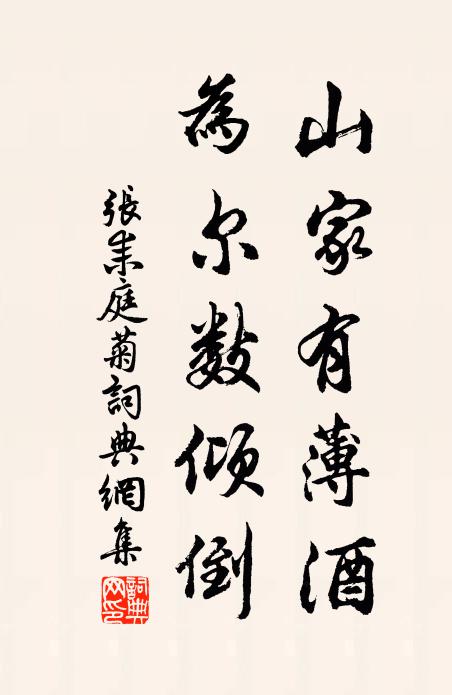 山家有薄酒
為尔數傾倒
張耒庭菊詞典網集
詞典网印